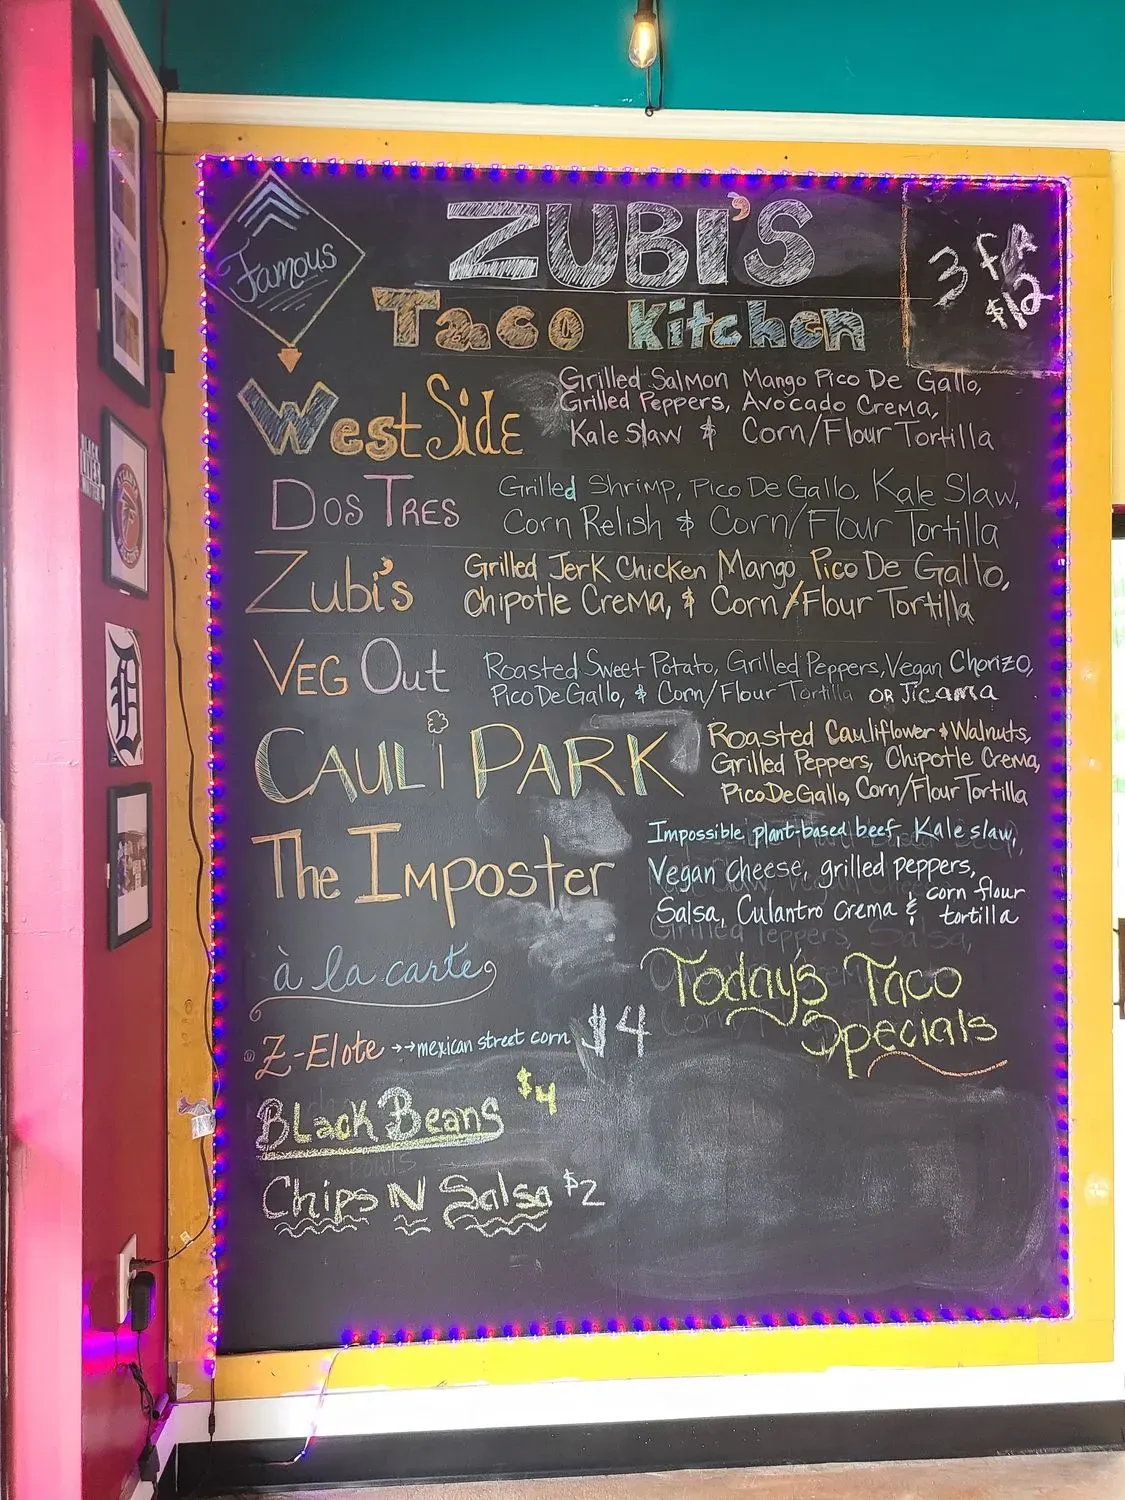 Famous
ZUBI'S
Taco Kitchen
3 for
$12
West Side
Grilled Salmon Mango Pico De Gallo,
Grilled Peppers, Avocado Crema,
Kale Slaw & Corn/Flour Tortilla
Dos Tres
Grilled Shrimp, Pico De Gallo, Kale Slaw,
Corn Relish & Corn/Flour Tortilla
Zubi's
Grilled Jerk Chicken Mango Pico De Gallo,
Chipotle Crema, & Corn/Flour Tortilla
Veg Out
Roasted Sweet Potato, Grilled Peppers, Vegan Chorizo,
Pico De Gallo, & Corn/Flour Tortilla OR Jicama
CAULI PARK
Roasted Cauliflower & Walnuts,
Grilled Peppers, Chipotle Crema,
Pico De Gallo, Corn/Flour Tortilla
The Imposter
Impossible plant-based beef, Kale slaw,
Vegan Cheese, grilled peppers,
Salsa, Culantro Crema & corn flour
tortilla
à la carte
Z-Elote →→mexican street corn $4
Black Beans $4
Chips N Salsa $2
Today's Taco
Specials
BLACK
LIVES
MATTER